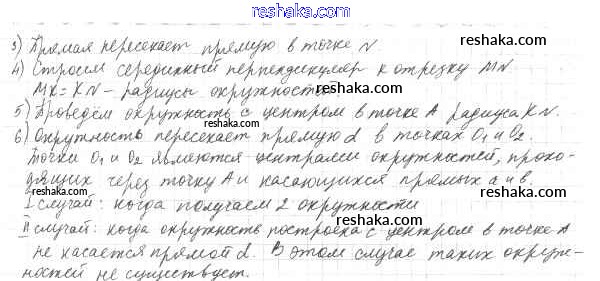 reshaka.com
3) Прямая пересекает прямую в точке N.
reshaka.com
4) Строим серединный перпендикуляр к отрезку MN
MK = KN - радиусы окружности
reshaka.com
5) Проведём окружность с центром в точке A радиуса KN.
reshaka.com
6) Окружность пересекает прямую d в точках O1 и O2.
Точки O1 и O2 являются центрами окружностей, прохо-
reshaka.com
дящих через точку A и касающихся прямых a и b.
reshaka.com
I случай: когда получаем 2 окружности
reshaka.com
II случай: когда окружность построена с центром в точке A
не касается прямой d. В этом случае таких окруж-
ностей не существует.
reshaka.com
reshaka.com